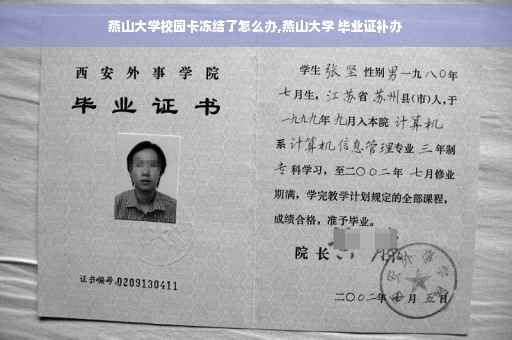 燕山大学校园卡冻结了怎么办,燕山大学 毕业证补办
西安外事学院
毕业证书
证书编号:0209130411
学生 张坚 性别 男 一九八〇年
七月生, 江苏省 苏州县(市)人,于
一九九九年 九月入本院 计算机
系 计算机信息管理专业 三年制
专科学习, 至二〇〇二年 七月修业
期满, 学完教学计划规定的全部课程,
成绩合格, 准予毕业。
院长
二〇〇二年 月 五日